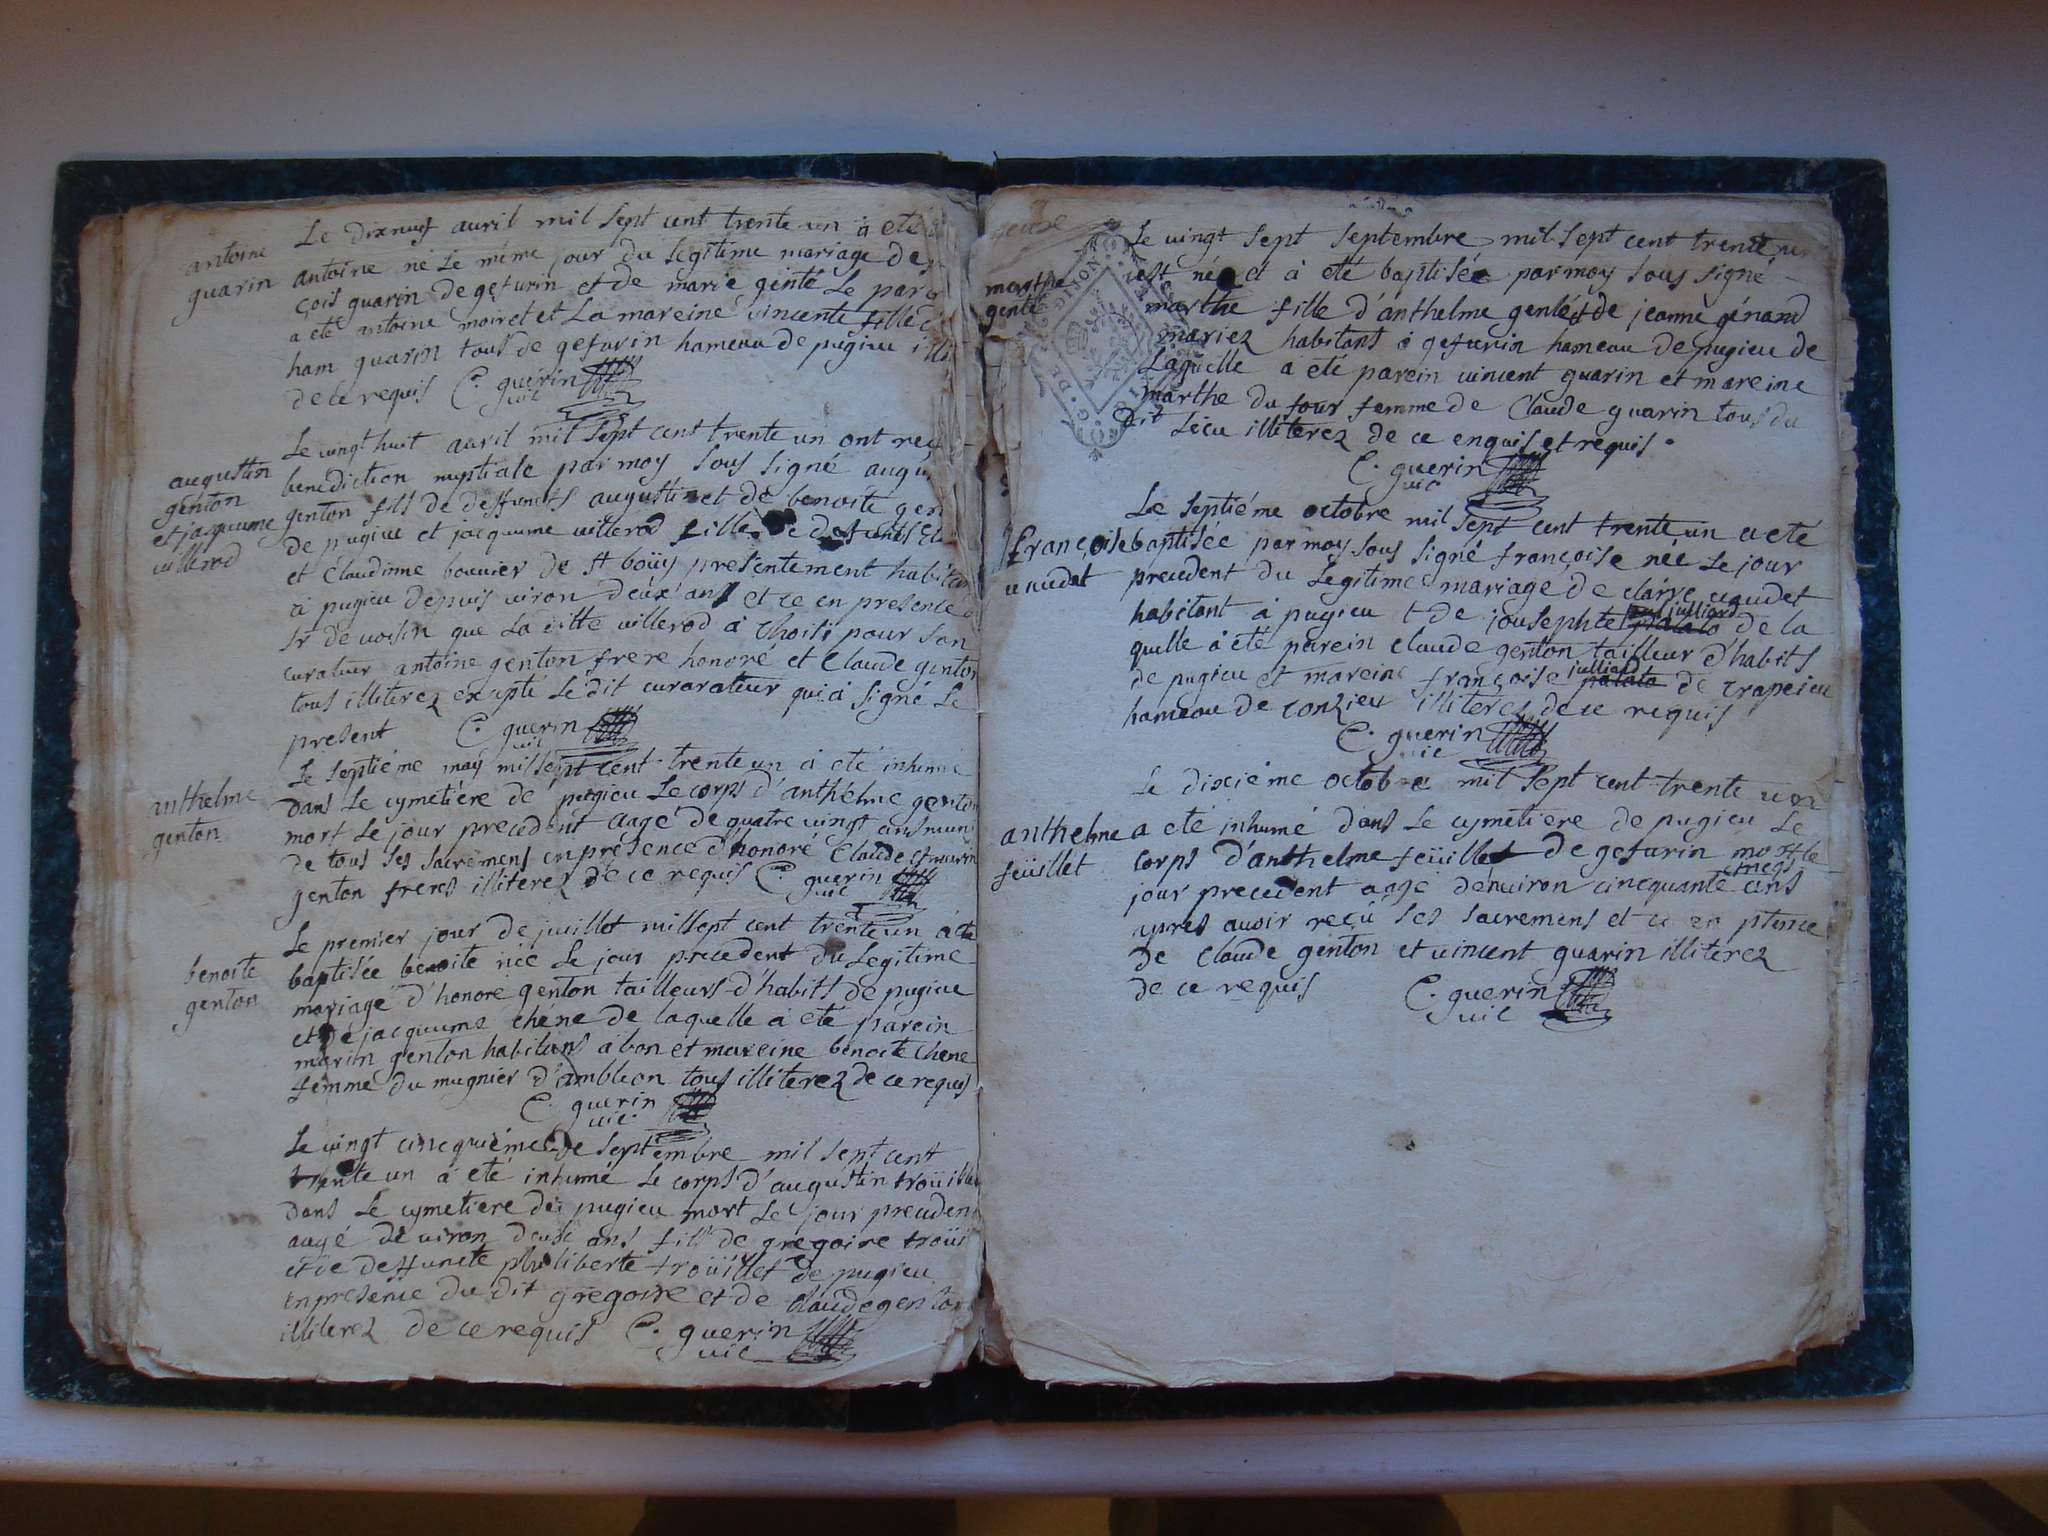 antoine
guarin
Le dixneuf auril mil sept cent trente un à eté
antoine né le méme jour du legitime mariage de
çois guarin de gefurin et de marie genté Le par
a eté antoine moiret et La mareine vincente fille
ham guarin tous de gefurin hameau de pugieu
de ce requis C. guérin
vic
augustin
genton
et jacquume
villerod
Le vingt huit auril mil sept cent trente un ont
benediction nuptiale par moy sous signé
genton fils de deffuncts augustin et de benoite
de pugieu et jacquume villerod fille de defunts
et Claudinne bouvier de st boüy presentement
à pugieu depuis viron deux ans et ce en presence
sr de voisin que La ditte villerod à choisi pour son
curateur antoine genton frere honoré et Claude genton
tous illiterez excepté Le dit curarateur qui à signé Le
present C. guerin
vic
anthelme
genton
Le septiéme may mil sept cent trente un à eté inhumé
dans Le cymetiére de pugieu Le corps d'anthelme genton
mort Le jour precedent aagé de quatre vingt ans muni
de tous ses sacremens en présence d'honoré Claude et marin
genton freres illiterez de ce requis C. guerin
vic
benoite
genton
Le premier jour de juillet mil sept cent trente un à eté
baptisée benoite née Le jour precedent du Legitime
mariage d'honoré genton tailleurs d'habits de pugieu
et de jacquume chene de laquelle à eté parein
marin genton habitans à bon et mareine benoite chene
femme du mugnier d'amblion tous illiterez de ce requis
C. guerin
vic
Le vingt cincquiéme de septembre mil sept cent
trente un à eté inhumé Le corps d'augustin
dans Le cymetiere de pugieu mort Le jour
aagé de viron deux ans fils de gregoire
et de deffuncte philiberte troüillet de pugieu
en presence du dit gregoire et de Claude genton
illiterez de ce requis C. guerin
vic
marthe
genté
G. DE DIJON
Le vingt sept septembre mil sept cent trente un
est née et à eté baptisée par moy sous signé
marthe fille d'anthelme genté et de jeanne génand
mariez habitans à gefurin hameau de pugieu de
Laquelle à eté parein vincent guarin et mareine
marthe du four femme de Claude guarin tous du
dit Lieu illiterez de ce enquis et requis.
C. guerin
vic
françoise
vaudet
Le septiéme octobre mil sept cent trente un a eté
baptisée par moy sous signé françoise née Le jour
precedent du Légitime mariage de claire vaudet
habitant à pugieu et de jousephte julliard de la
quelle à eté parein claude genton tailleur d'habits
de pugieu et mareine françoise julliard palato de crapeieu
hameau de conzieu illiterez de ce requis
C. guerin
vic
anthelme
feüillet
Le dixiéme octobre mil sept cent trente un
a eté inhumé dans Le cymetiere de pugieu Le
corps d'anthelme feüillet de gefurin mort le
jour precedent aagé d'enuiron cincquante cincqs ans
apres avoir reçu ses sacremens et ce en ptence
de Claude genton et vincent guarin illiterez
de ce requis C. guerin
vic